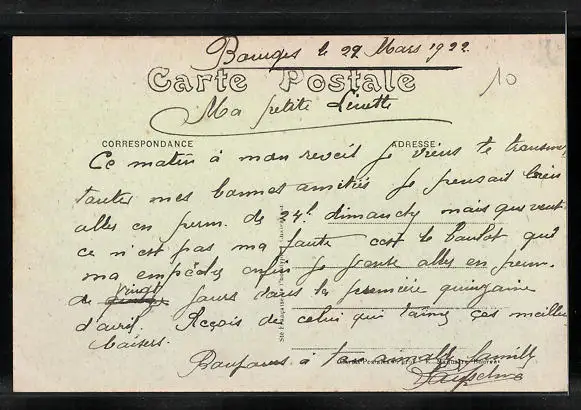 Bourges le 29 Mars 1922
Carte Postale
10
Ma petite Linette
CORRESPONDANCE
ADRESSE
Ce matin à mon reveil je viens te transmes
toutes mes bonnes amitiés Je pensait bien
alles en perm. de 24h dimanche mais que veut
ce n'est pas ma faute cest le boulot qui
ma empéché enfin je pense alles en perm.
de vingt jours dans la première quinzaine
d'avril. Reçois de celui qui t'aime ces meilleu
baisers.
Bonjours à ta famille